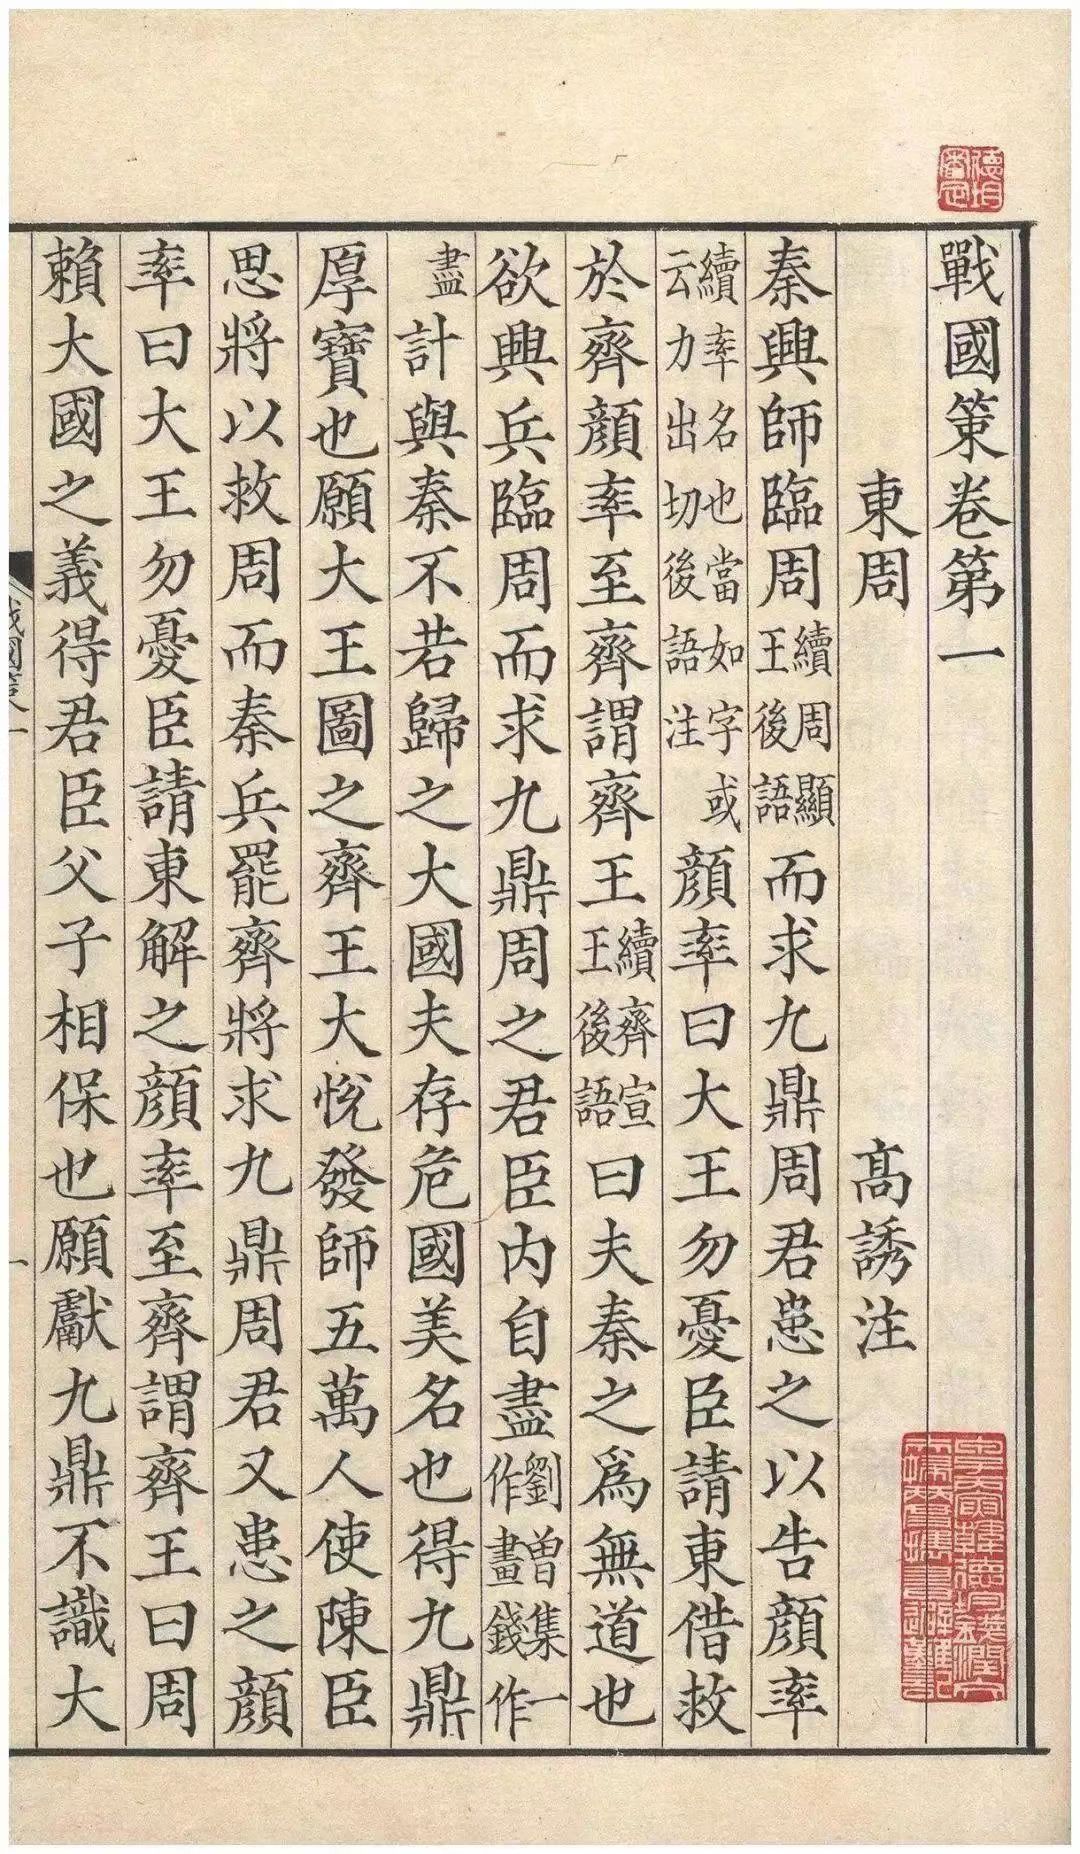 戰國策卷第一
東周 高誘注
秦興師臨周續周顯王後語而求九鼎周君患之以告顔率
續率名也當如字或云力出切後語注顔率曰大王勿憂臣請東借救
於齊顔率至齊謂齊王續齊宣王後語曰夫秦之爲無道也
欲興兵臨周而求九鼎周之君臣内自盡劉曾集一作畫錢作
盡計與秦不若歸之大國夫存危國美名也得九鼎
厚寶也願大王圖之齊王大悅發師五萬人使陳臣
思將以救周而秦兵罷齊將求九鼎周君又患之顔
率曰大王勿憂臣請東解之顔率至齊謂齊王曰周
賴大國之義得君臣父子相保也願獻九鼎不識大